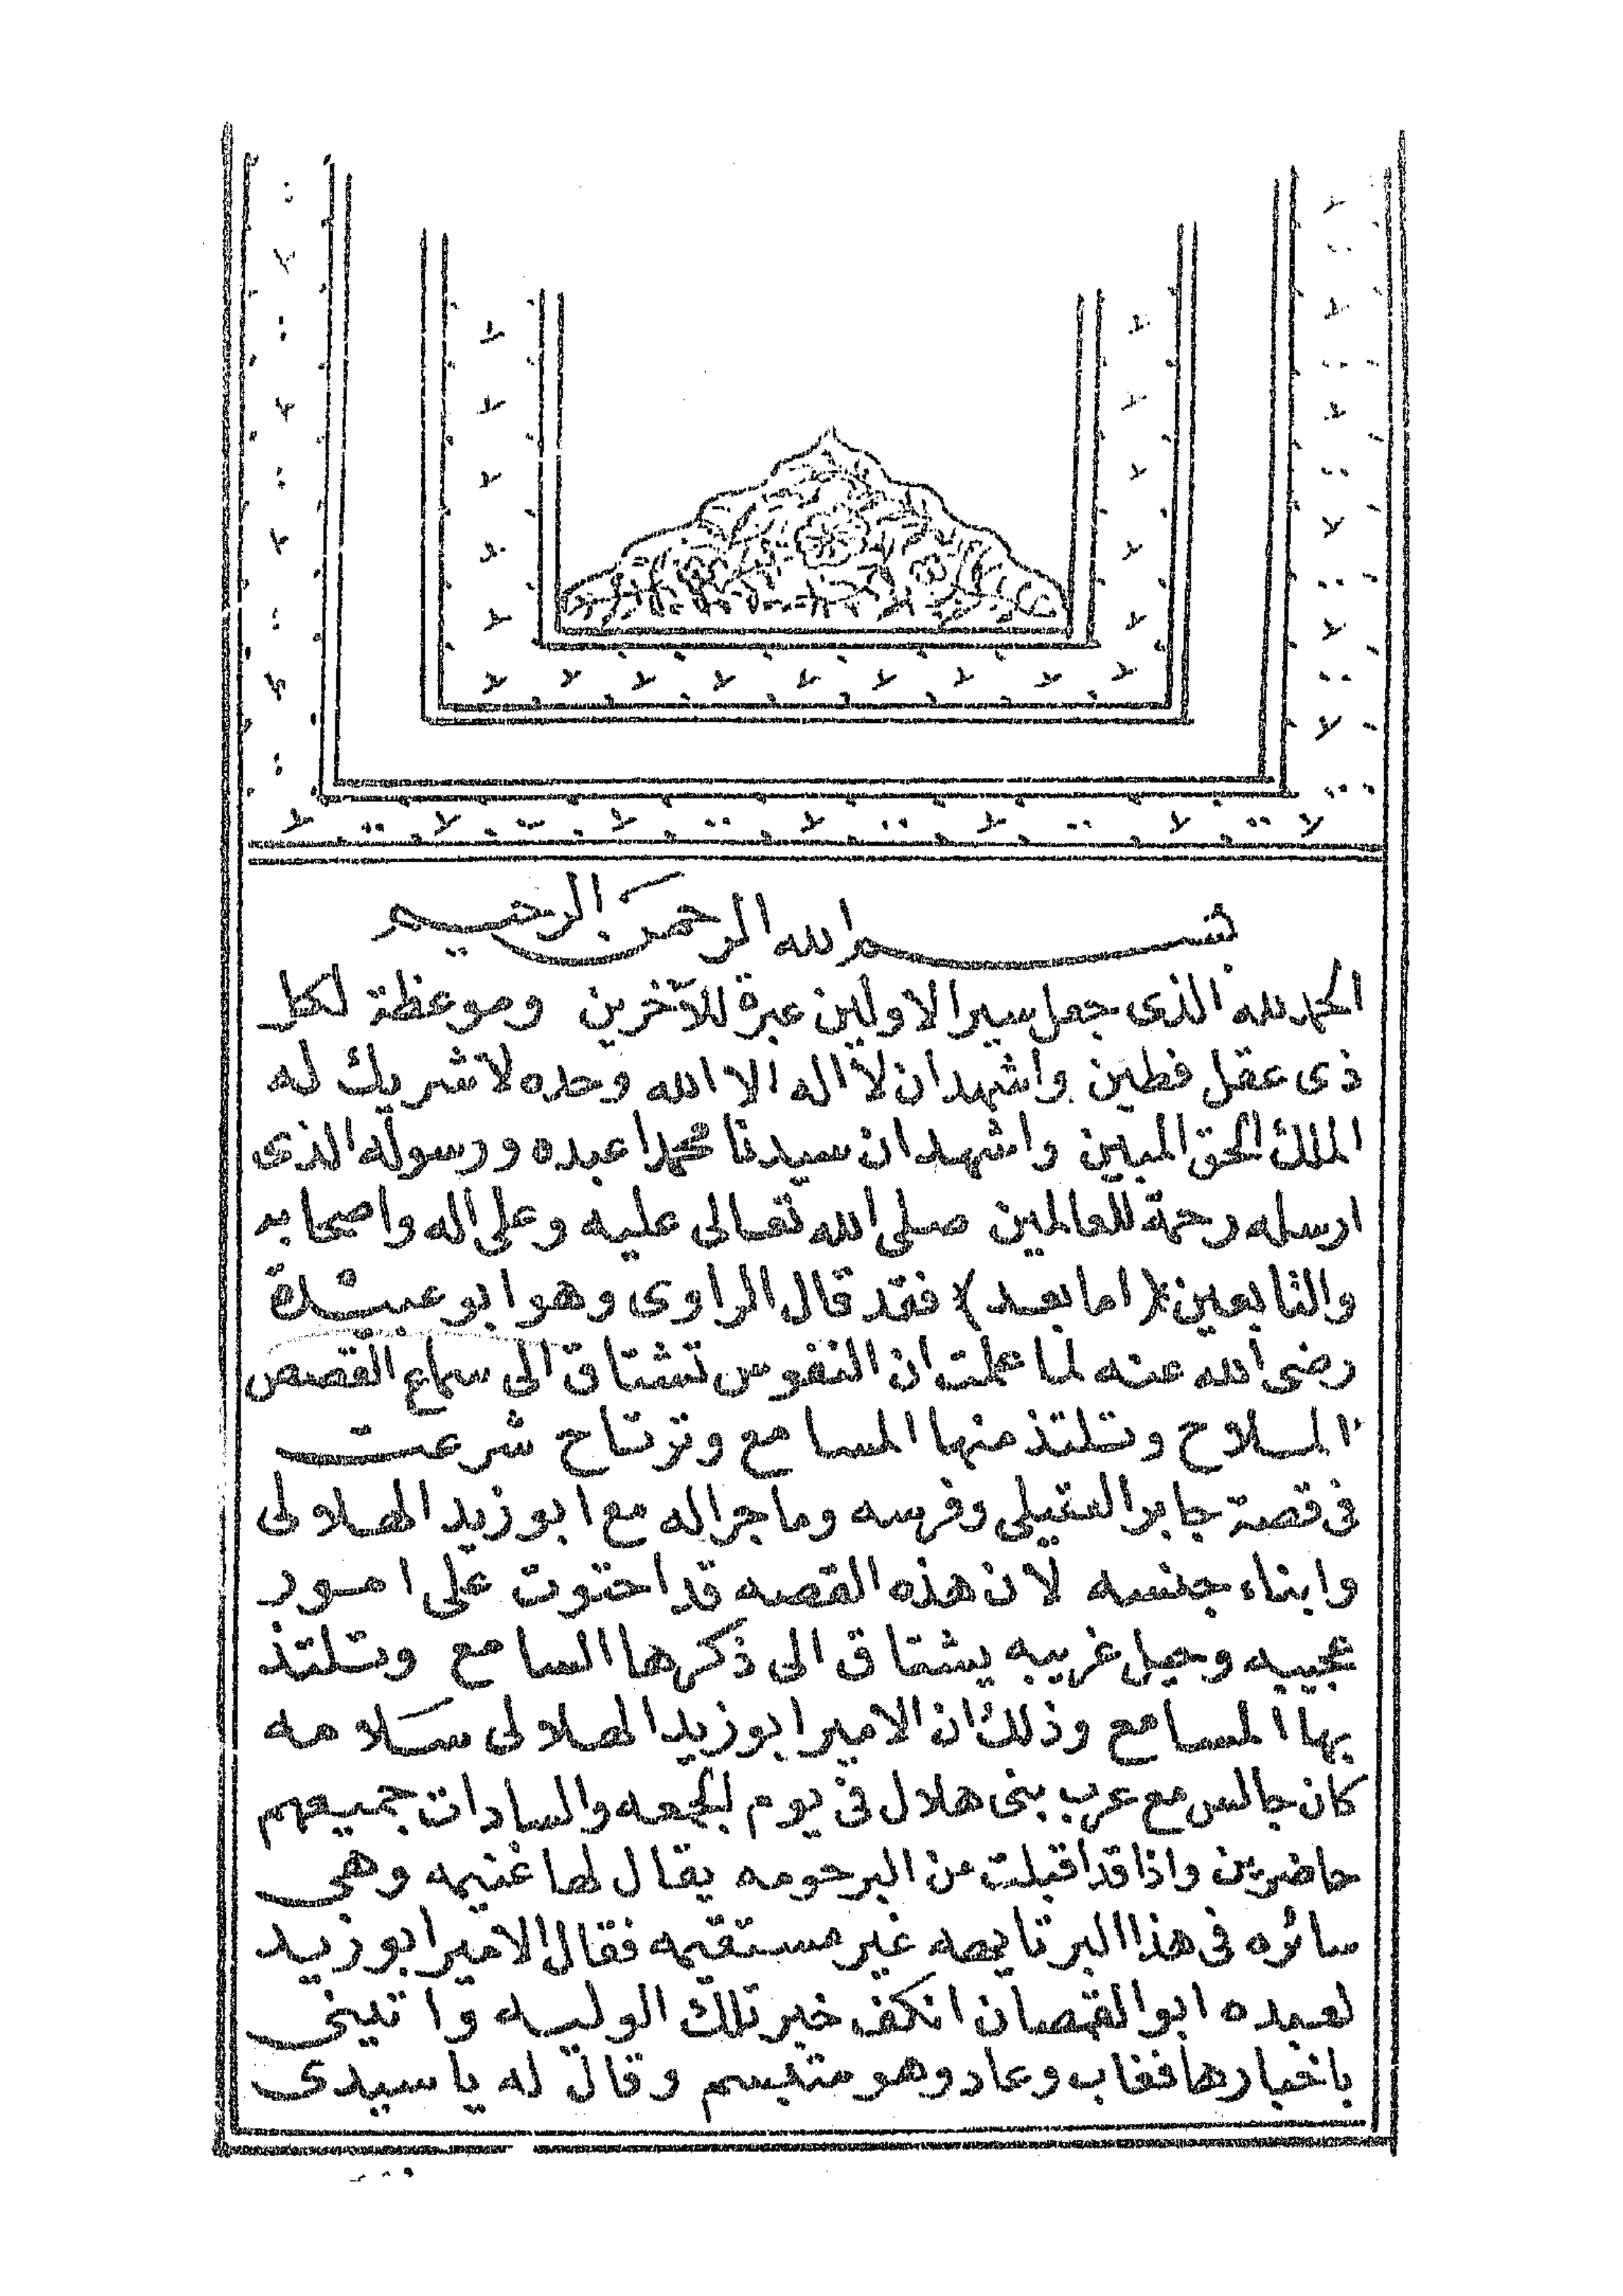 بسم الله الرحمن الرحيم
الحمد لله الذى جعل سير الاولين عبرة للآخرين وموعظة لكل
ذى عقل فطين واشهد ان لا اله الا الله وحده لا شريك له
الملك الحق المبين واشهد ان سيدنا محمدا عبده ورسوله الذى
ارسله رحمة للعالمين صلى الله تعالى عليه وعلى اله واصحابه
والتابعين (اما بعد) فقد قال الراوى وهو ابو عبيدة
رضى الله عنه لما علمت ان النفوس تشتاق الى سماع القصص
الملاح وتلتذ منها المسامع وترتاح شرعت
فى قصة جابر العقيلى وفرسه وما جراله مع ابو زيد الهلالى
وابناء جنسه لان هذه القصه قد احتوت على امور
عجيبه وحيل غريبه يشتاق الى ذكرها السامع وتلتذ
بها المسامع وذلك ان الامير ابو زيد الهلالى سلامه
كان جالس مع عرب بنى هلال فى يوم الجمعه والسادات جميعهم
حاضرين واذا قد اقبلت من البر حومه يقال لها غنيمه وهى
سائره فى هذا البر تايهه غير مستقيمه فقال الامير ابو زيد
لعبده ابو القمصان انكف خبر تلك الوليه واتينى
باخبارها فغاب وعاد وهو متبسم وقال له يا سيدى